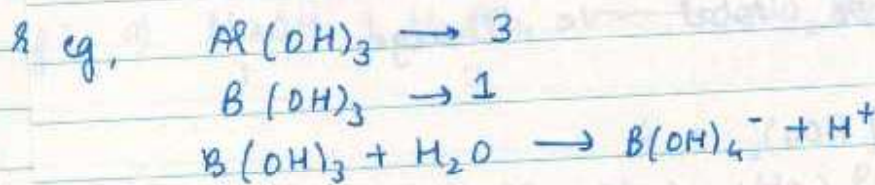 & eg, Al(OH)₃ → 3
B(OH)₃ → 1
B(OH)₃ + H₂O → B(OH)₄⁻ + H⁺